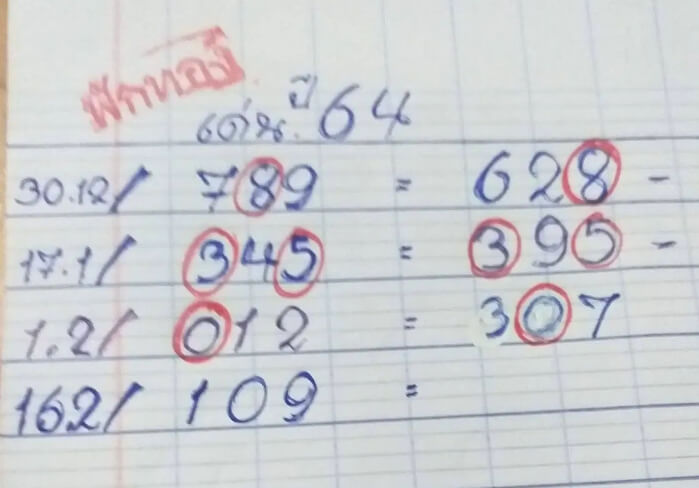 ฟักทอง
เด่น. ปี 64
30.12/ 789 = 628 -
17.1/ 345 = 395 -
1.2/ 012 = 307
162/ 109 =